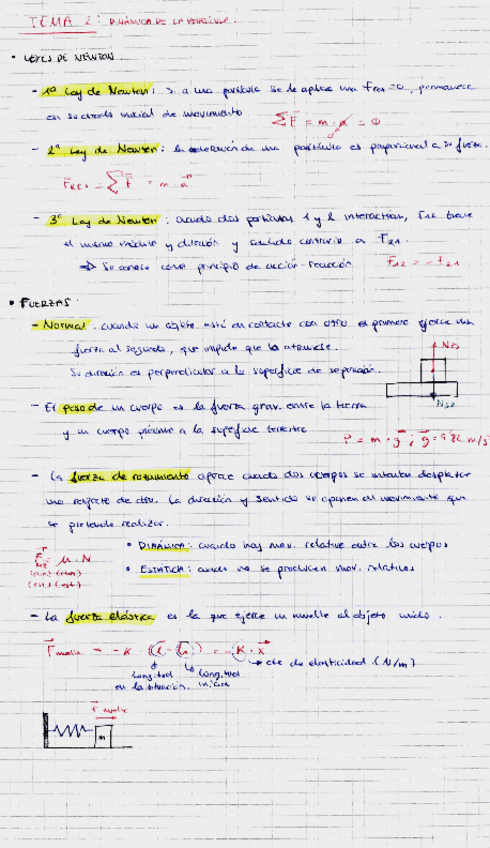 TEMA 2: DINÁMICA DE LA PARTÍCULA.
• LEYES DE NEWTON
- 1ª Ley de Newton: si a una partícula se le aplica una FRES = 0, permanece
en su estado inicial de movimiento ΣF = m · a = 0
- 2ª Ley de Newton: la aceleración de una partícula es proporcional a su fuerza.
FRES = ΣF = m · a
- 3ª Ley de Newton: cuando dos partículas 1 y 2 interactúan, F12 tiene
el mismo módulo y dirección y sentido contrario a F21.
⇒ Se conoce como principio de acción-reacción F12 = -F21
• FUERZAS:
- Normal: cuando un objeto está en contacto con otro el primero ejerce una
fuerza al segundo, que impide que lo atraviese.
Su dirección es perpendicular a la superficie de separación.
- El peso de un cuerpo es la fuerza grav. entre la tierra
y un cuerpo próximo a la superficie terrestre
P = m · g ; g = 9'82 m/s
- La fuerza de rozamiento aparece cuando dos cuerpos se intentan desplazar
uno respecto de otro. La dirección y sentido se oponen al movimiento que
se pretende realizar.
• DINÁMICA: cuando hay mov. relativo entre los cuerpos
= μ · N
• ESTÁTICA: cuando no se producen mov. relativos
- La fuerza elástica es la que ejerce un muelle al objeto unido.
Fmuelle = -K · (l - l0) = -K · x
cte de elasticidad (N/m)
longitud longitud
en la situación. inicial
F muelle
m